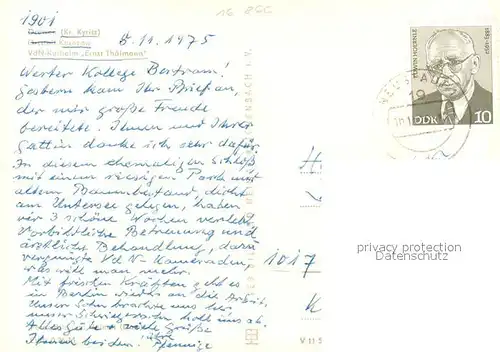 1901
16 86C
(Kr. Kyritz)
VdN-Kurheim „Ernst Thälmann"
5.11.1975
Werter Kollege Bertram!
Gestern kam Ihr Brief an,
der mir große Freude
bereitete. Ihnen und Ihrer
Gattin danke ich sehr dafür.
In diesem ehemaligen Schloß
mit einem riesigen Park mit
altem Baumbestand, dicht
am Untersee gelegen, haben
wir 3 schöne Wochen verlebt.
Vorbildliche Betreuung und
ärztliche Behandlung, dazu
vergnügte VdN-Kameraden,
was will man mehr.
Mit frischen Kräften geht es
in Berlin wieder an die Arbeit.
Unser
unser Schwiegersohn holt uns ab.
Alles Gute + viele Grüße
Ihnen beiden. Ihre
EDWIN HOERNLE
1883-1952
DDR 10
19
1017
privacy protection
Datenschutz
V 11 5